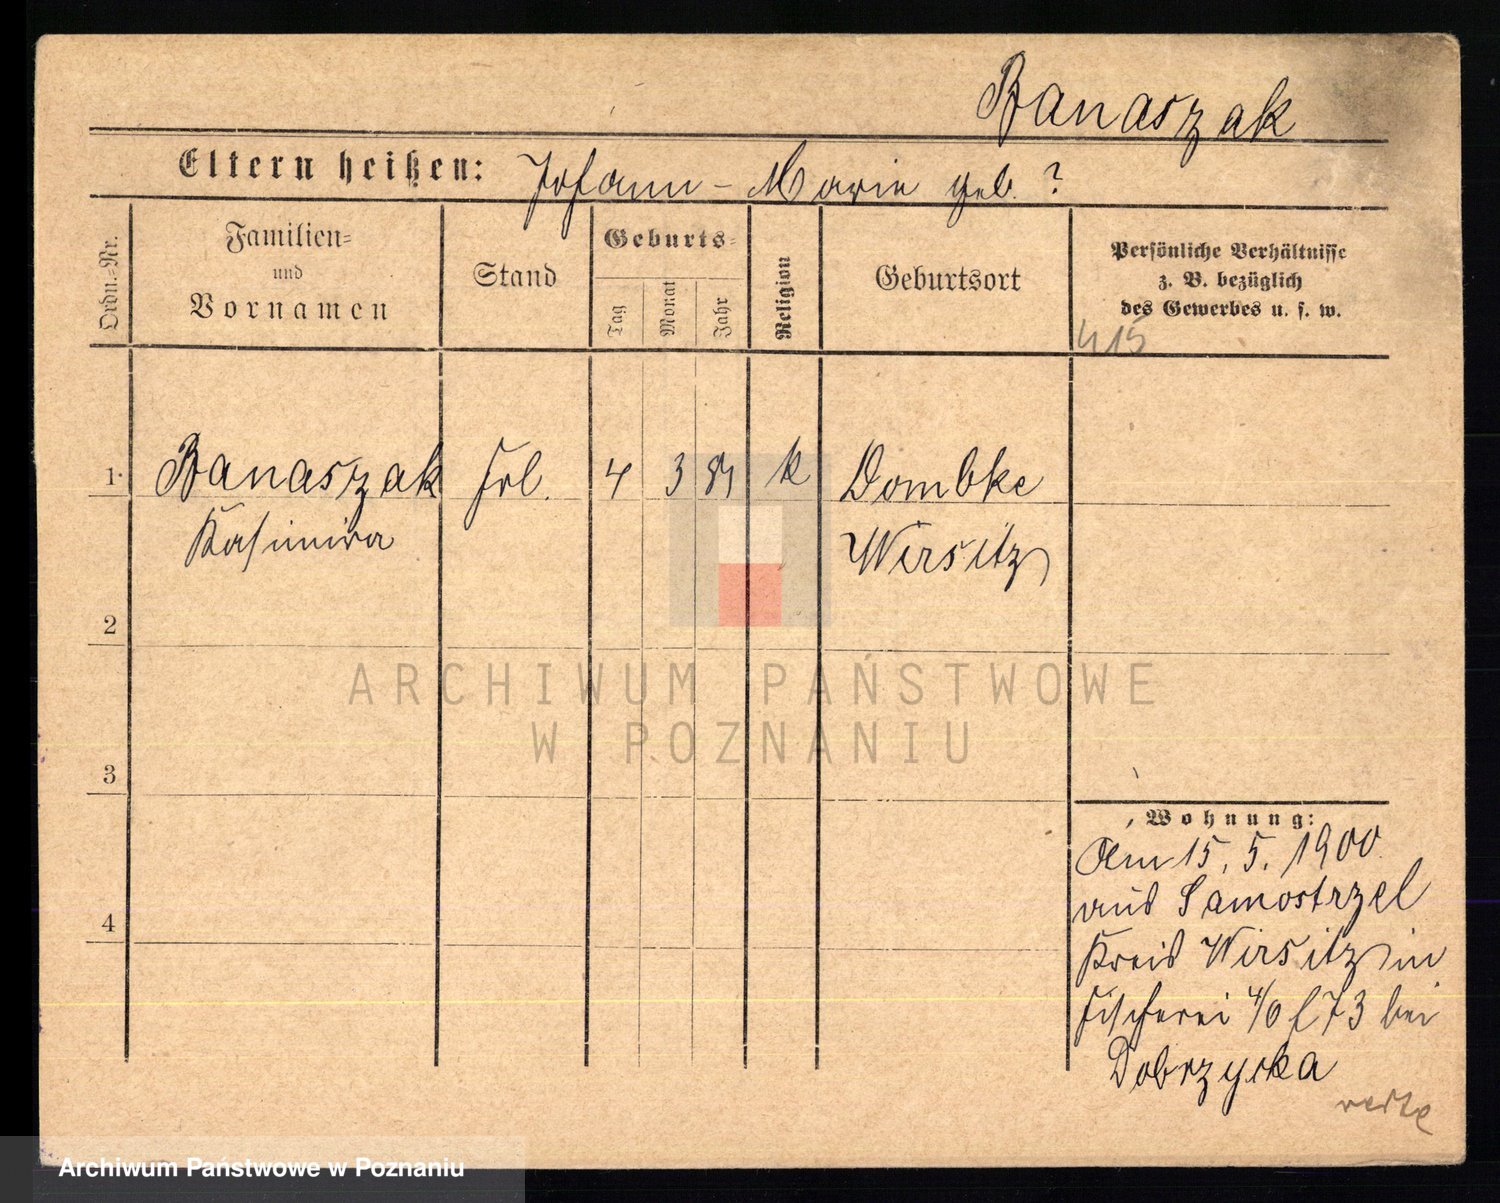 Banaszak
Eltern heißen: Johann – Marie geb. ?
Ordn.-Nr.
Familien-
und
Vornamen
Stand
Geburts-
Tag
Monat
Jahr
Religion
Geburtsort
Persönliche Verhältnisse
z. B. bezüglich
des Gewerbes u. s. w.
415
1. Banaszak Frl. 4 3 k Dombke
Kasimira Wirsitz
2
ARCHIWUM PAŃSTWOWE
W POZNANIU
3
Wohnung:
Am 15. 5. 1900
aus Samostrzel
Kreis Wirsitz in
Fischerei 73 bei
4
Dobrzycka
verte
Archiwum Państwowe w Poznaniu